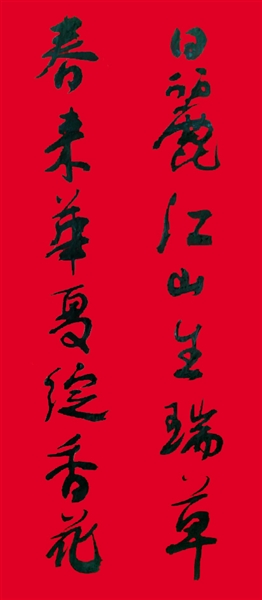 日麗江山生瑞草
春来華夏綻香花